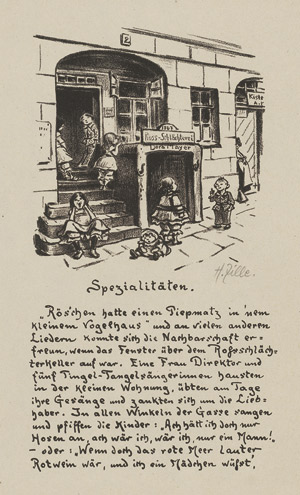 2
Ross-Schlächterei
Dora Mayer
H. Zille.
Spezialitäten.
„Röschen hatte einen Piepmatz in 'nem
kleinem Vogelhaus" und an vielen anderen
Liedern konnte sich die Nachbarschaft er=
freuen, wenn das Fenster über dem Roßschläch=
terkeller auf war. Eine Frau Direktor und
fünf Tingel-Tangelsängerinnen hausten
in der kleinen Wohnung, übten am Tage
ihre Gesänge und zankten sich um die Lieb=
haber. In allen Winkeln der Gasse sangen
und pfiffen die Kinder: „Ach hätt ich doch nur
Hosen an, ach wär ich, wär ich, nur ein Mann!"
– oder: „Wenn doch das rote Meer lauter
Rotwein wär, und ich ein Mädchen wüßt,